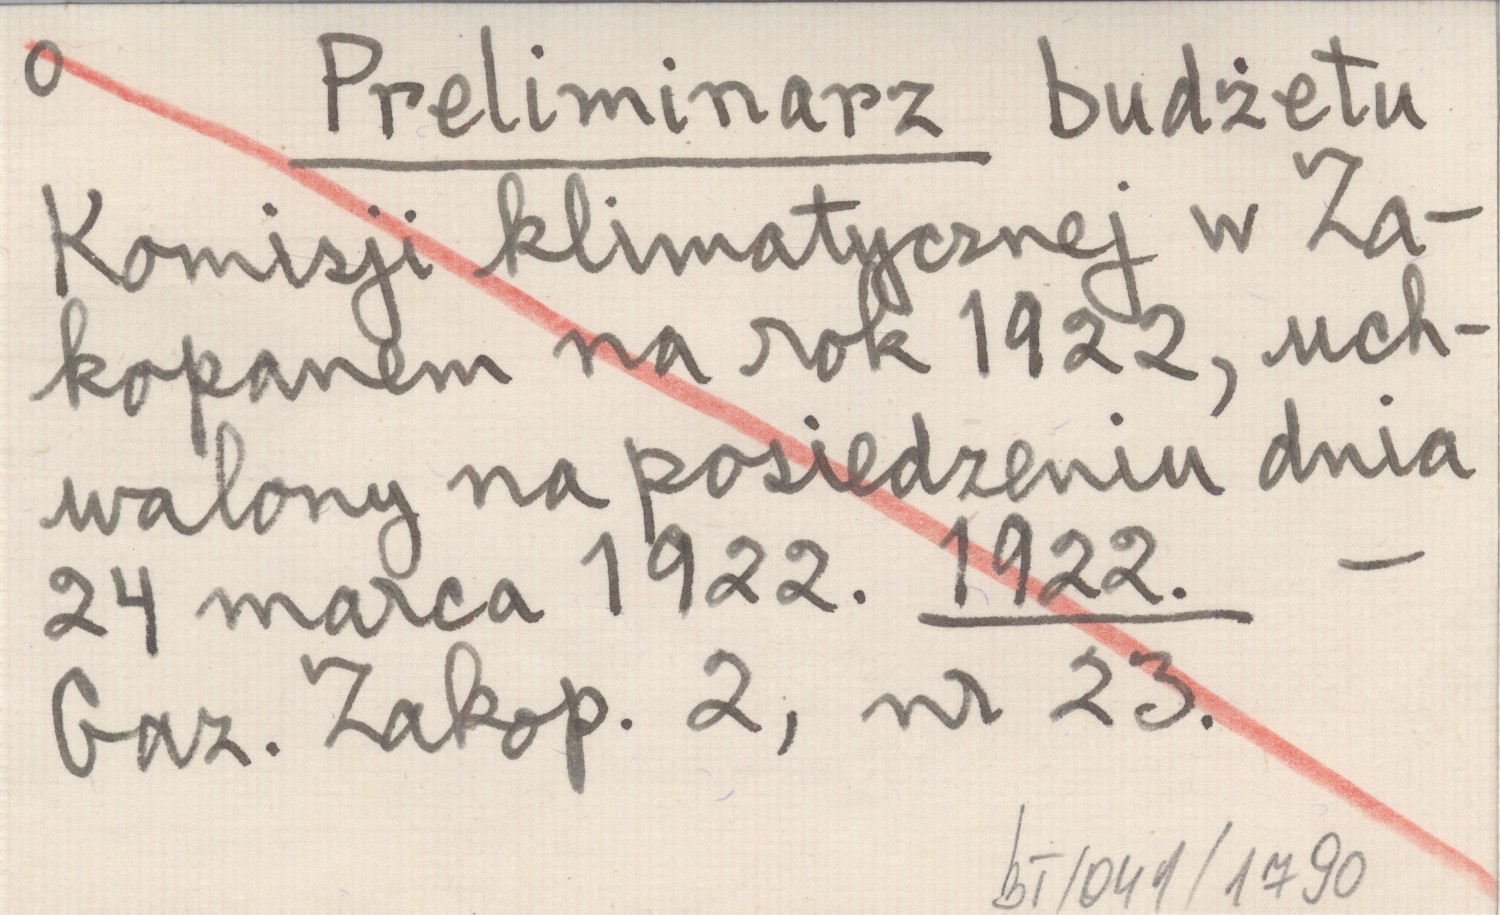 o Preliminarz budżetu
Komisji klimatycznej w Za-
kopanem na rok 1922, uch-
walony na posiedzeniu dnia
24 marca 1922. 1922. –
Gaz. Zakop. 2, nr 23.
bT/041/1790